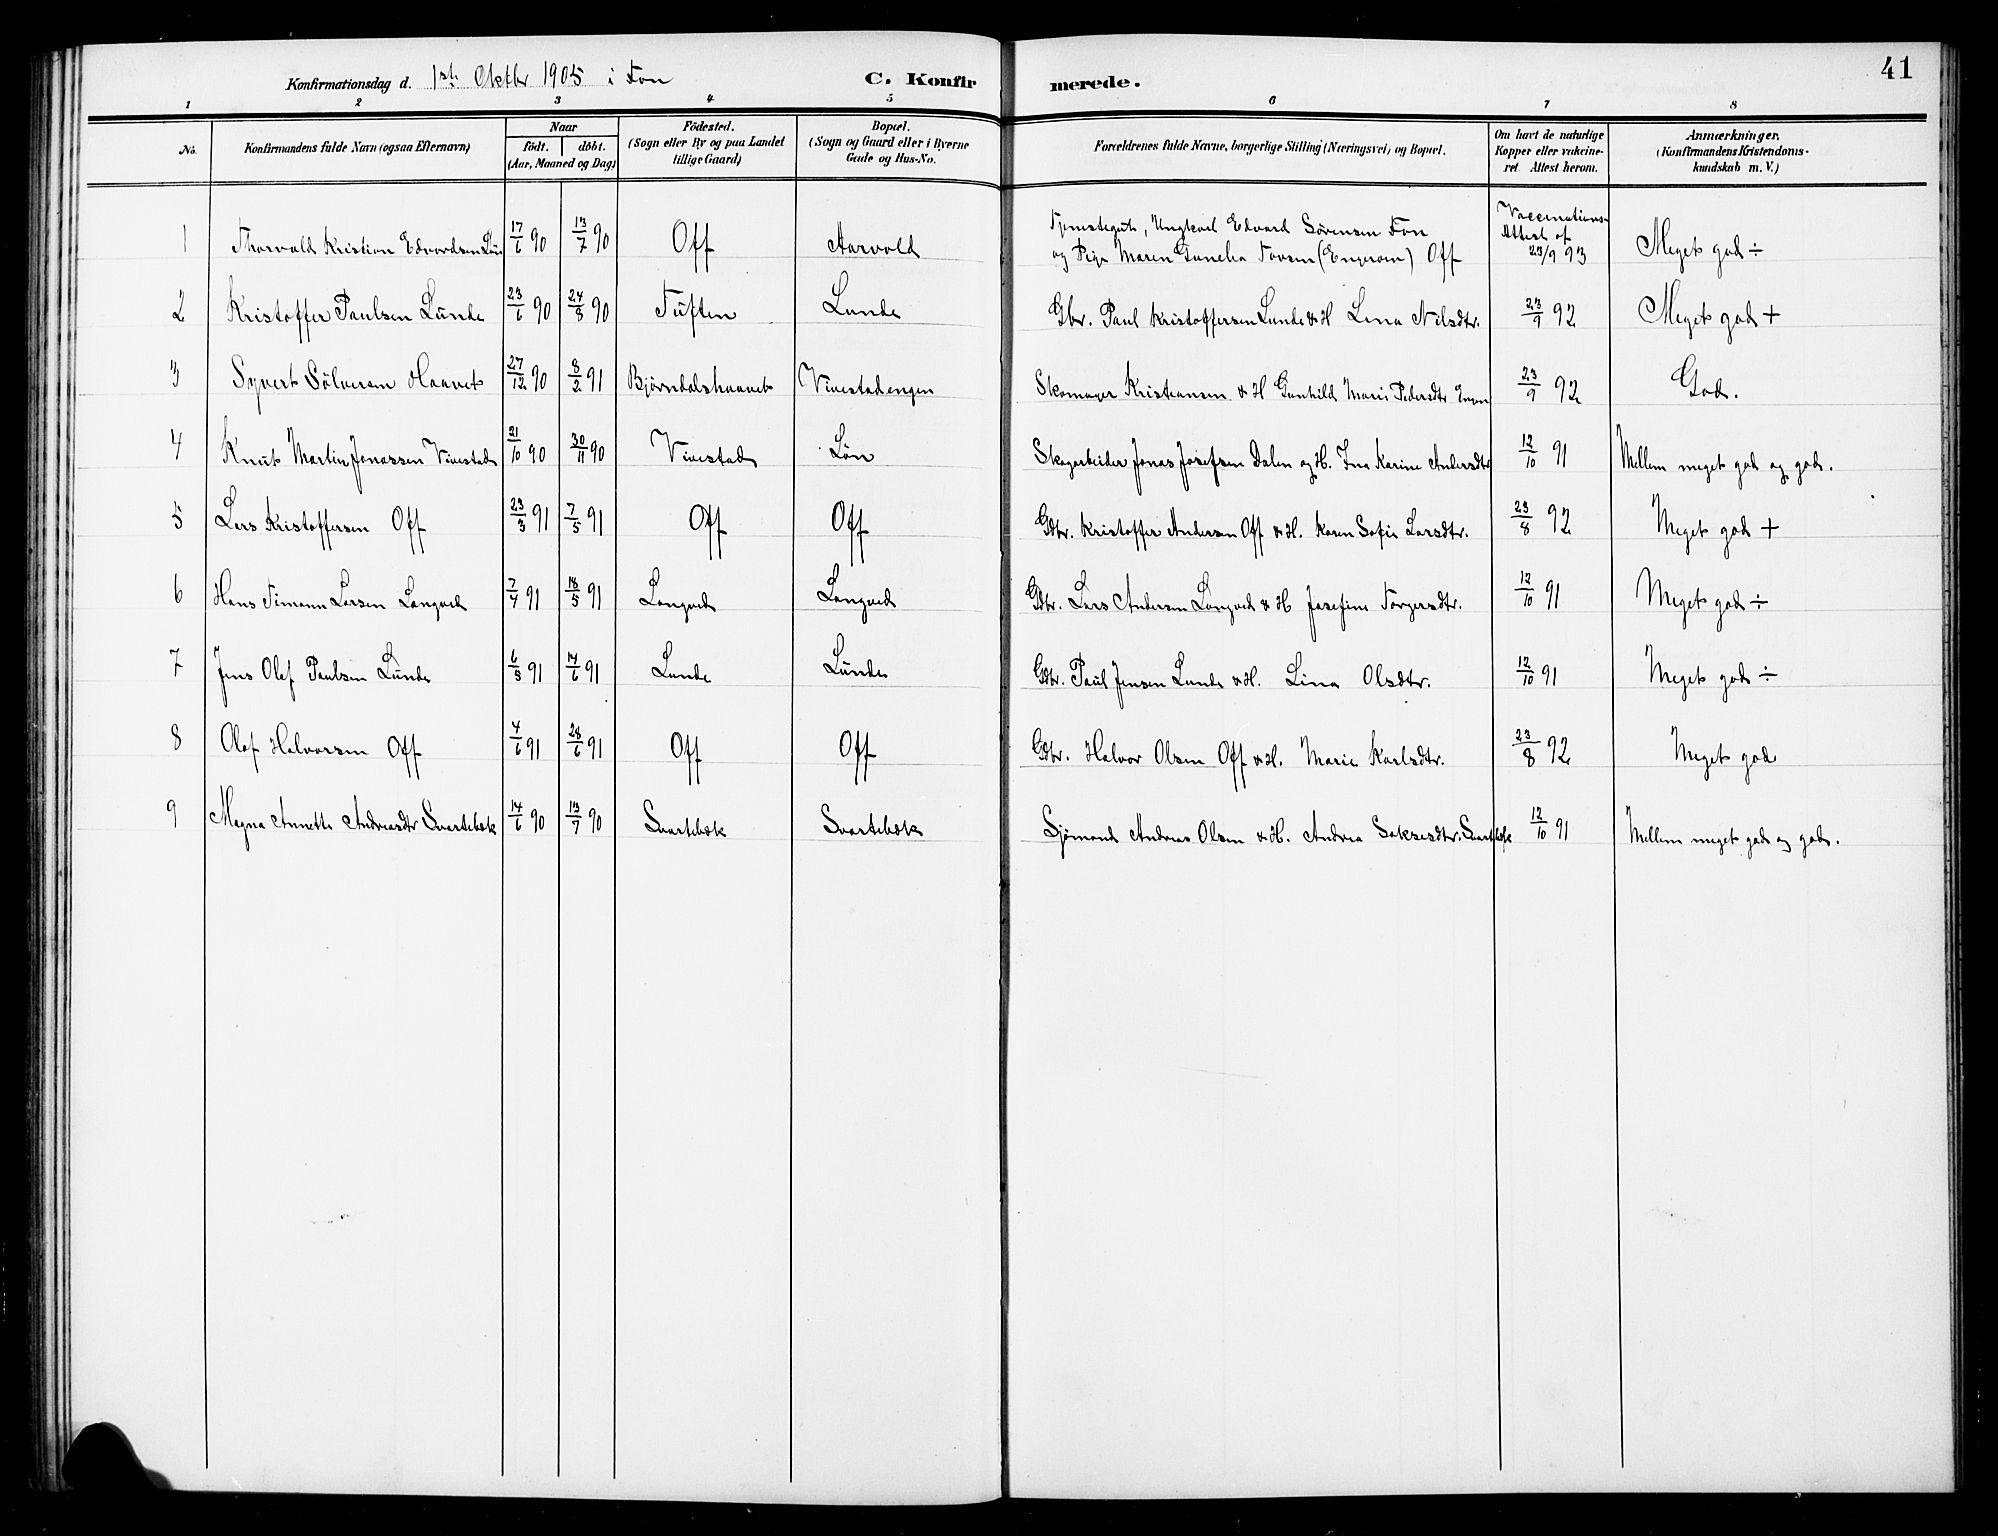 41
Konfirmationsdag d. 1ste Oktbr 1905 i Fon C. Konfirmerede.
1 2 3 4 5 6 7 8
No. Konfirmandens fulde Navn (ogsaa Efternavn) Naar födt. döbt. (Aar, Maaned og Dag) Födested. (Sogn eller By og paa Landet tillige Gaard) Bopæl. (Sogn og Gaard eller i Byerne Gade og Hus-No. Forældrenes fulde Navne, borgerlige Stilling (Næringsvei) og Bopæl. Om havt de naturlige Kopper eller vakcineret. Attest herom. Anmærkninger. (Konfirmandens Kristendomskundskab m. V.)
1 Thorvald Kristian Edvardsen 17/6 90 13/7 90 Off Aarvold Tjenestegut, Ungkarl Edvard Sörensen Fon og Pige Maren Gunelia (Engerom) Off Vaccinations-Attest af 23/9 93 Meget god ÷
2 Kristoffer Paulsen Lunde 23/6 90 24/8 90 Tuften Lunde Gbr. Paul Kristoffersen Lunde & H Lena Nilsdtr. 23/9 92 Meget god +
3 Syvert Sölversen Haavet 27/12 90 8/2 91 Bjørndalshaavet Vivestadengen Skomager Kristiansen & H Gunhild Marie Pedersdtr Engen 23/9 92 God.
4 Knut Martin Jonassen Vivestad 21/10 90 30/11 90 Vivestad Lön Skogarbeider Jonas Josefsen Dalen og H. Ina Karine Andersdtr 12/10 91 Mellem meget god og god.
5 Lars Kristoffersen Off 23/3 91 7/5 91 Off Off Gdbr. Kristoffer Andersen Off & H. Karen Sofie Larsdtr. 23/8 92 Meget god +
6 Hans Timann Larsen Langved 7/4 91 18/5 91 Langved Langved Gdbr. Lars Andersen Langved & H Josefine Torgersdtr. 12/10 91 Meget god ÷
7 Jens Olaf Paulsen Lunde 6/5 91 14/6 91 Lunde Lunde Gdbr. Paul Jensen Lunde & H. Lina Olsdtr. 12/10 91 Meget god ÷
8 Olaf Halvorsen Off 4/6 91 28/6 91 Off Off Gdbr. Halvor Olsen Off & H. Marie Karlsdtr. 23/8 92 Meget god
9 Magna Annette Andreasdtr Svartebæk 14/6 90 13/7 90 Svartebæk Svartebæk Sjömand Andreas Olsen & H. Andrea Saksesdtr. Svartebæk 12/10 91 Mellem meget god og god.